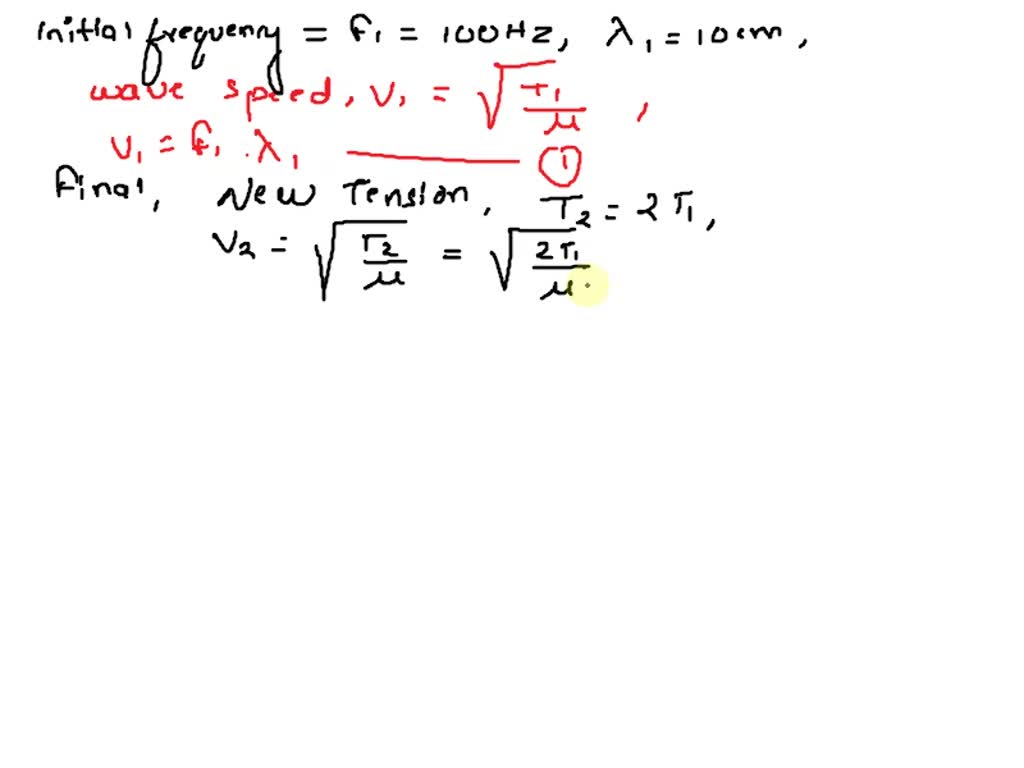 initial frequency = f₁ = 100Hz, λ₁ = 10cm,
wave speed, V₁ = √(T₁/μ),
V₁ = f₁ . λ₁ ——— ①
Final, New Tension, T₂ = 2T₁,
V₂ = √(T₂/μ) = √(2T₁/μ)